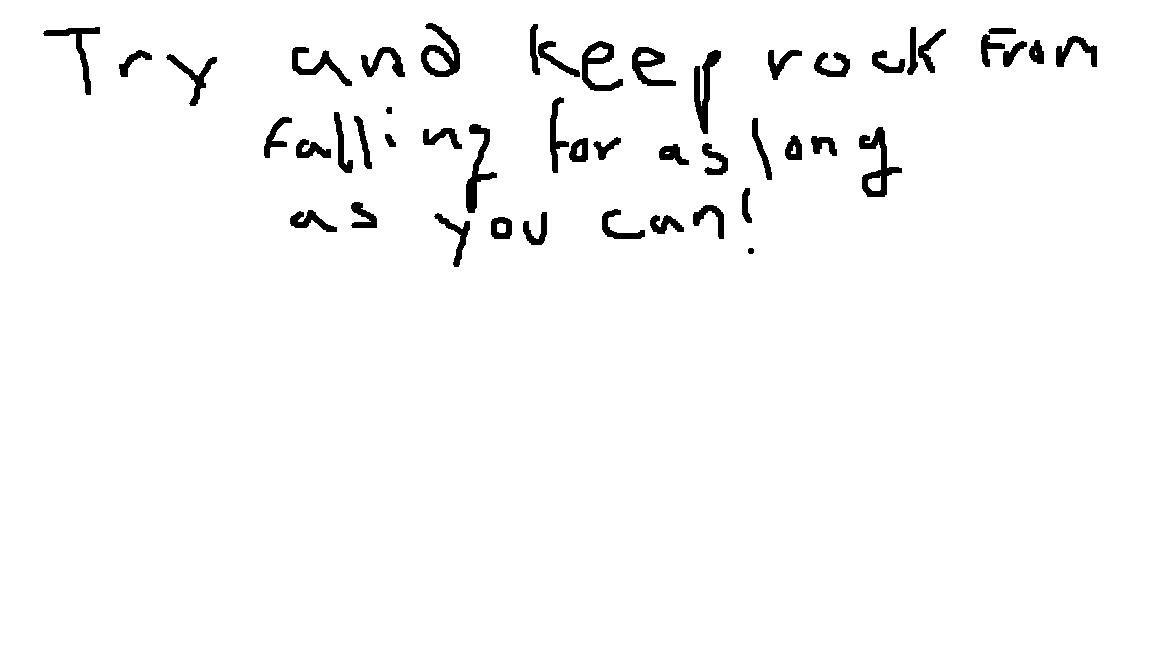 Try and keep rock from
falling for as long
as you can!